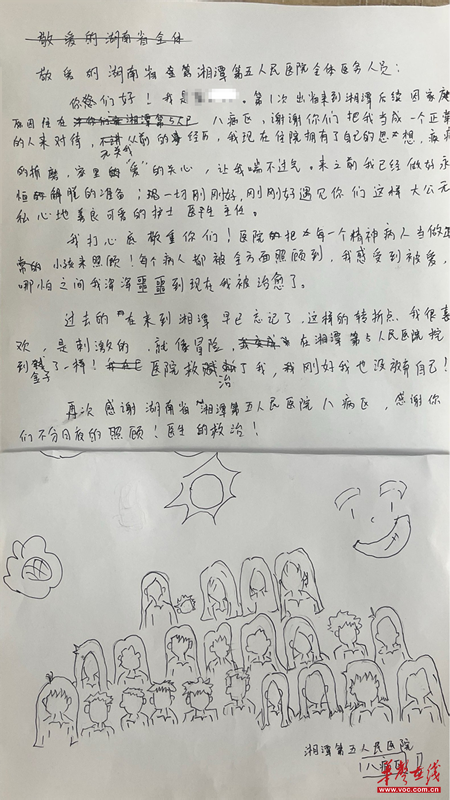 敬爱的湖南省全体
敬爱的湖南省 湘潭第五人民医院全体医务人员：
你们好！我是 。第1次出省来到湘潭后续因家庭
原因住在 湘潭第5人民 八病区，谢谢你们把我当成一个正常
的人来对待，不讲从前的事经历，我现在住院拥有了自己的思想，疾病
的折磨，家里的“爱”的关心，让我喘不过气。来之前我已经做好永
恒的解脱的准备；竭一切刚刚好，刚刚好遇见你们这样大公无
私心地善良可爱的护士医生主任。
我打心底敬重你们！医院把每一个精神病人当做正
常的小孩来照顾！每个病人都被全方面照顾到，我感受到被爱，
哪怕之间我浑浑噩噩到现在我被治愈了。
过去的“在来到湘潭早已忘记了，这样的转折点我很喜
欢，是刺激的，就像冒险， 在湘潭第5人民医院挖
到金子了一样！ 医院救治了我，我刚好我也没放弃自己！
再次感谢湖南省“湘潭第五人民医院八病区，感谢你
们不分日夜的照顾！医生的救治！
湘潭第五人民医院
八病区
华声在线
www.voc.com.cn